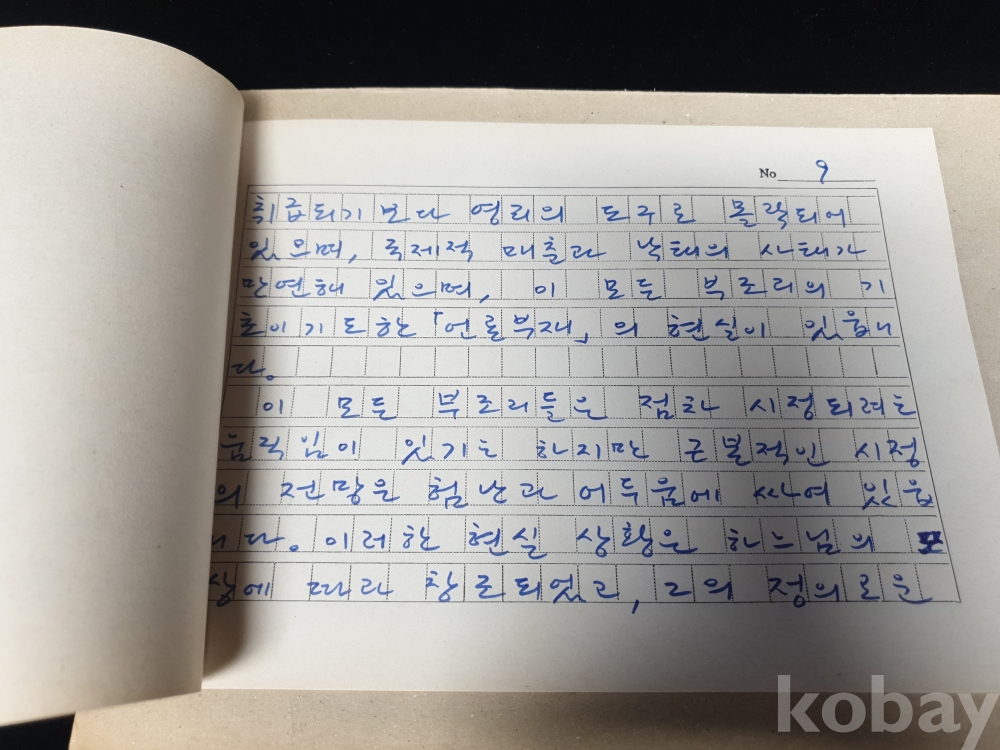 No 9
취급되기 보다 영리의 도구로 몰락되어
있으며, 국제적 매춘과 낙태의 사태가
만연해 있으며, 이 모든 부조리의 기
초이기도한 「언론부재」의 현실이 있읍니
다.
이 모든 부조리들은 점차 시정되려는
움직임이 있기는 하지만 근본적인 시정
의 전망은 험난과 어두움에 싸여 있읍
니다. 이러한 현실 상황은 하느님의 모
상에 따라 창조되었고, 그의 정의로운
kobay